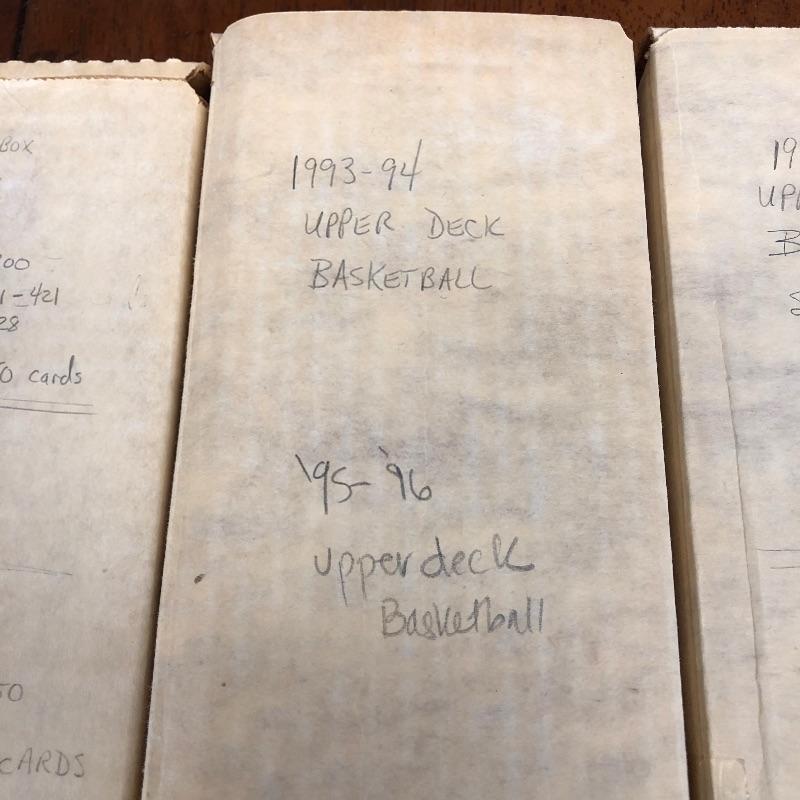 BOX
00
1-421
28
0 cards
50
CARDS
1993-94
UPPER DECK
BASKETBALL
'95-'96
upper deck
Basketball
19
UPP
B